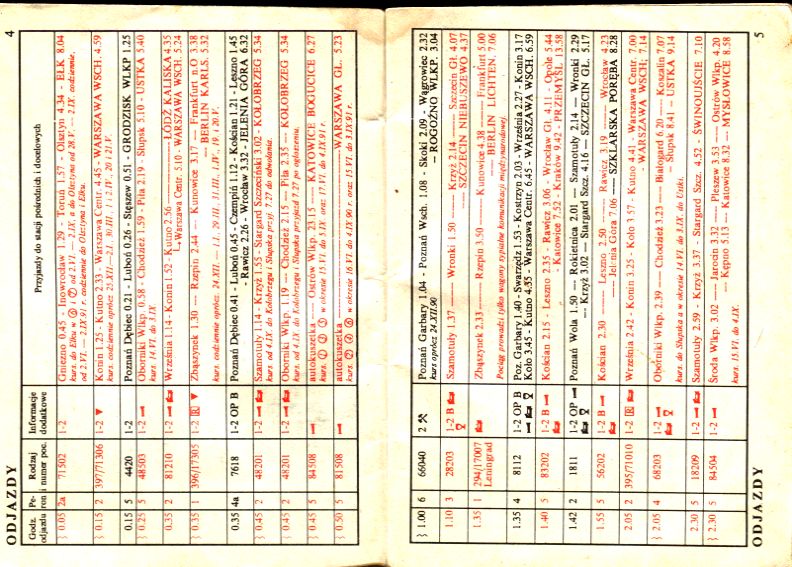 4
ODJAZDY
Godz. odjazdu Pe-ron Rodzaj i numer poc. Informacje dodatkowe Przyjazdy do stacji pośrednich i docelowych
0.05 2a 71502 1-2 Gniezno 0.45 - Inowrocław 1.29 - Toruń 1.57 - Olsztyn 4.34 - EŁK 8.04
0.15 2 397/71306 1-2 Konin 1.25 - Kutno 2.33 - Warszawa Centr. 4.45 - WARSZAWA WSCH. 4.59
0.15 5 4420 1-2 Poznań Dębiec 0.21 - Luboń 0.26 - Stęszew 0.51 - GRODZISK WLKP 1.25
0.25 5 48503 1-2 Oborniki Wlkp. 0.58 - Chodzież 1.59 - Piła 2.19 - Słupsk 5.10 - USTKA 5.40
kurs. 14.VI. do 3.IX
0.35 2 81210 1-2 Września 1.14 - Konin 1.52 - Kutno 2.56 — ŁÓDŹ KALISKA 4.35
Warszawa Centr. 5.10 - WARSZAWA WSCH. 5.24
0.35 1 396/17305 1-2 R Zbąszynek 1.30 — Rzepin 2.44 — Kunowice 3.17 — Frankfurt n.O 3.38
— BERLIN KARLS. 5.32
0.35 4a 7618 1-2 OP B Poznań Dębiec 0.41 - Luboń 0.45 - Czempiń 1.12 - Kościan 1.21 - Leszno 1.45
- Rawicz 2.26 - Wrocław 3.32 - JELENIA GÓRA 6.32
0.45 2 48201 1-2 Szamotuły 1.14 - Krzyż 1.55 - Stargard Szczeciński 3.02 - KOŁOBRZEG 5.34
kurs. od 4.IX. do Kołobrzegu i Słupska przyj. 7.27 do odwołania.
0.45 2 48201 1-2 Oborniki Wlkp. 1.19 — Chodzież 2.15 — Piła 2.35 — KOŁOBRZEG 5.34
kurs. od 4.IX. do Kołobrzegu i Słupska przyjazd 7.27 po ogłoszeniu.
0.45 5 84508 autokuszetka — Ostrów Wlkp. 23.15 — KATOWICE BOGUCICE 6.27
0.50 5 81508 autokuszetka — WARSZAWA GŁ. 5.23
1.00 6 66040 2 Poznań Garbary 1.04 - Poznań Wsch. 1.08 - Skoki 2.09 - Wągrowiec 2.32
kurs oprócz 24.XII.90 — ROGOŹNO WLKP. 3.04
1.10 3 28203 1-2 B Szamotuły 1.37 — Wronki 1.50 — Krzyż 2.14 — Szczecin Gł. 4.07
— SZCZECIN NIEBUSZEWO 4.37
1.35 1 294/17007 Leningrad Zbąszynek 2.33 — Rzepin 3.50 — Kunowice 4.38 — Frankfurt 5.00
— BERLIN LICHTEN. 7.06
Pociąg prowadzi tylko wagony sypialne komunikacji międzynarodowej.
1.35 4 8112 1-2 OP B Poz. Garbary 1.40 - Swarzędz 1.53 - Kostrzyn 2.03 - Września 2.27 - Konin 3.17
Koło 3.45 - Kutno 4.35 - Warszawa Centr. 6.45 - WARSZAWA WSCH. 6.59
1.40 5 83202 1-2 B Kościan 2.15 - Leszno 2.35 - Rawicz 3.06 - Wrocław Gł. 4.11 - Opole 5.44
- Katowice 7.52 - Kraków 9.42 - PRZEMYŚL 13.58
1.42 2 1811 1-2 OP Poznań Wola 1.50 — Rokietnica 2.01 — Szamotuły 2.14 — Wronki 2.29
— Krzyż 3.02 — Stargard Szcz. 4.16 — SZCZECIN GŁ. 5.17
1.55 5 56202 1-2 B Kościan 2.30 — Leszno 2.50 — Rawicz 3.19 — Wrocław 4.23
— Jelenia Góra 7.06 — SZKLARSKA PORĘBA 8.28
2.05 2 395/71010 1-2 R Września 2.42 - Konin 3.25 - Koło 3.57 - Kutno 4.41 - Warszawa Centr. 7.00
WARSZAWA WSCH. 7.14
2.05 4 68203 1-2 Oborniki Wlkp. 2.39 — Chodzież 3.23 — Białogard 6.20 — Koszalin 7.07
Słupsk 8.41 - USTKA 9.14
kurs. do Słupska a w okresie 14.VI. do 3.IX. do Ustki.
2.30 5 18209 1-2 Szamotuły 2.59 - Krzyż 3.37 - Stargard Szcz. 4.52 - ŚWINOUJŚCIE 7.10
2.30 5 84504 1-2 Środa Wlkp. 3.02 — Jarocin 3.32 — Pleszew 3.53 — Ostrów Wlkp. 4.20
— Kępno 5.13 — Katowice 8.32 — MYSŁOWICE 8.58
kurs. 15.VI. do 4.IX.
ODJAZDY
5